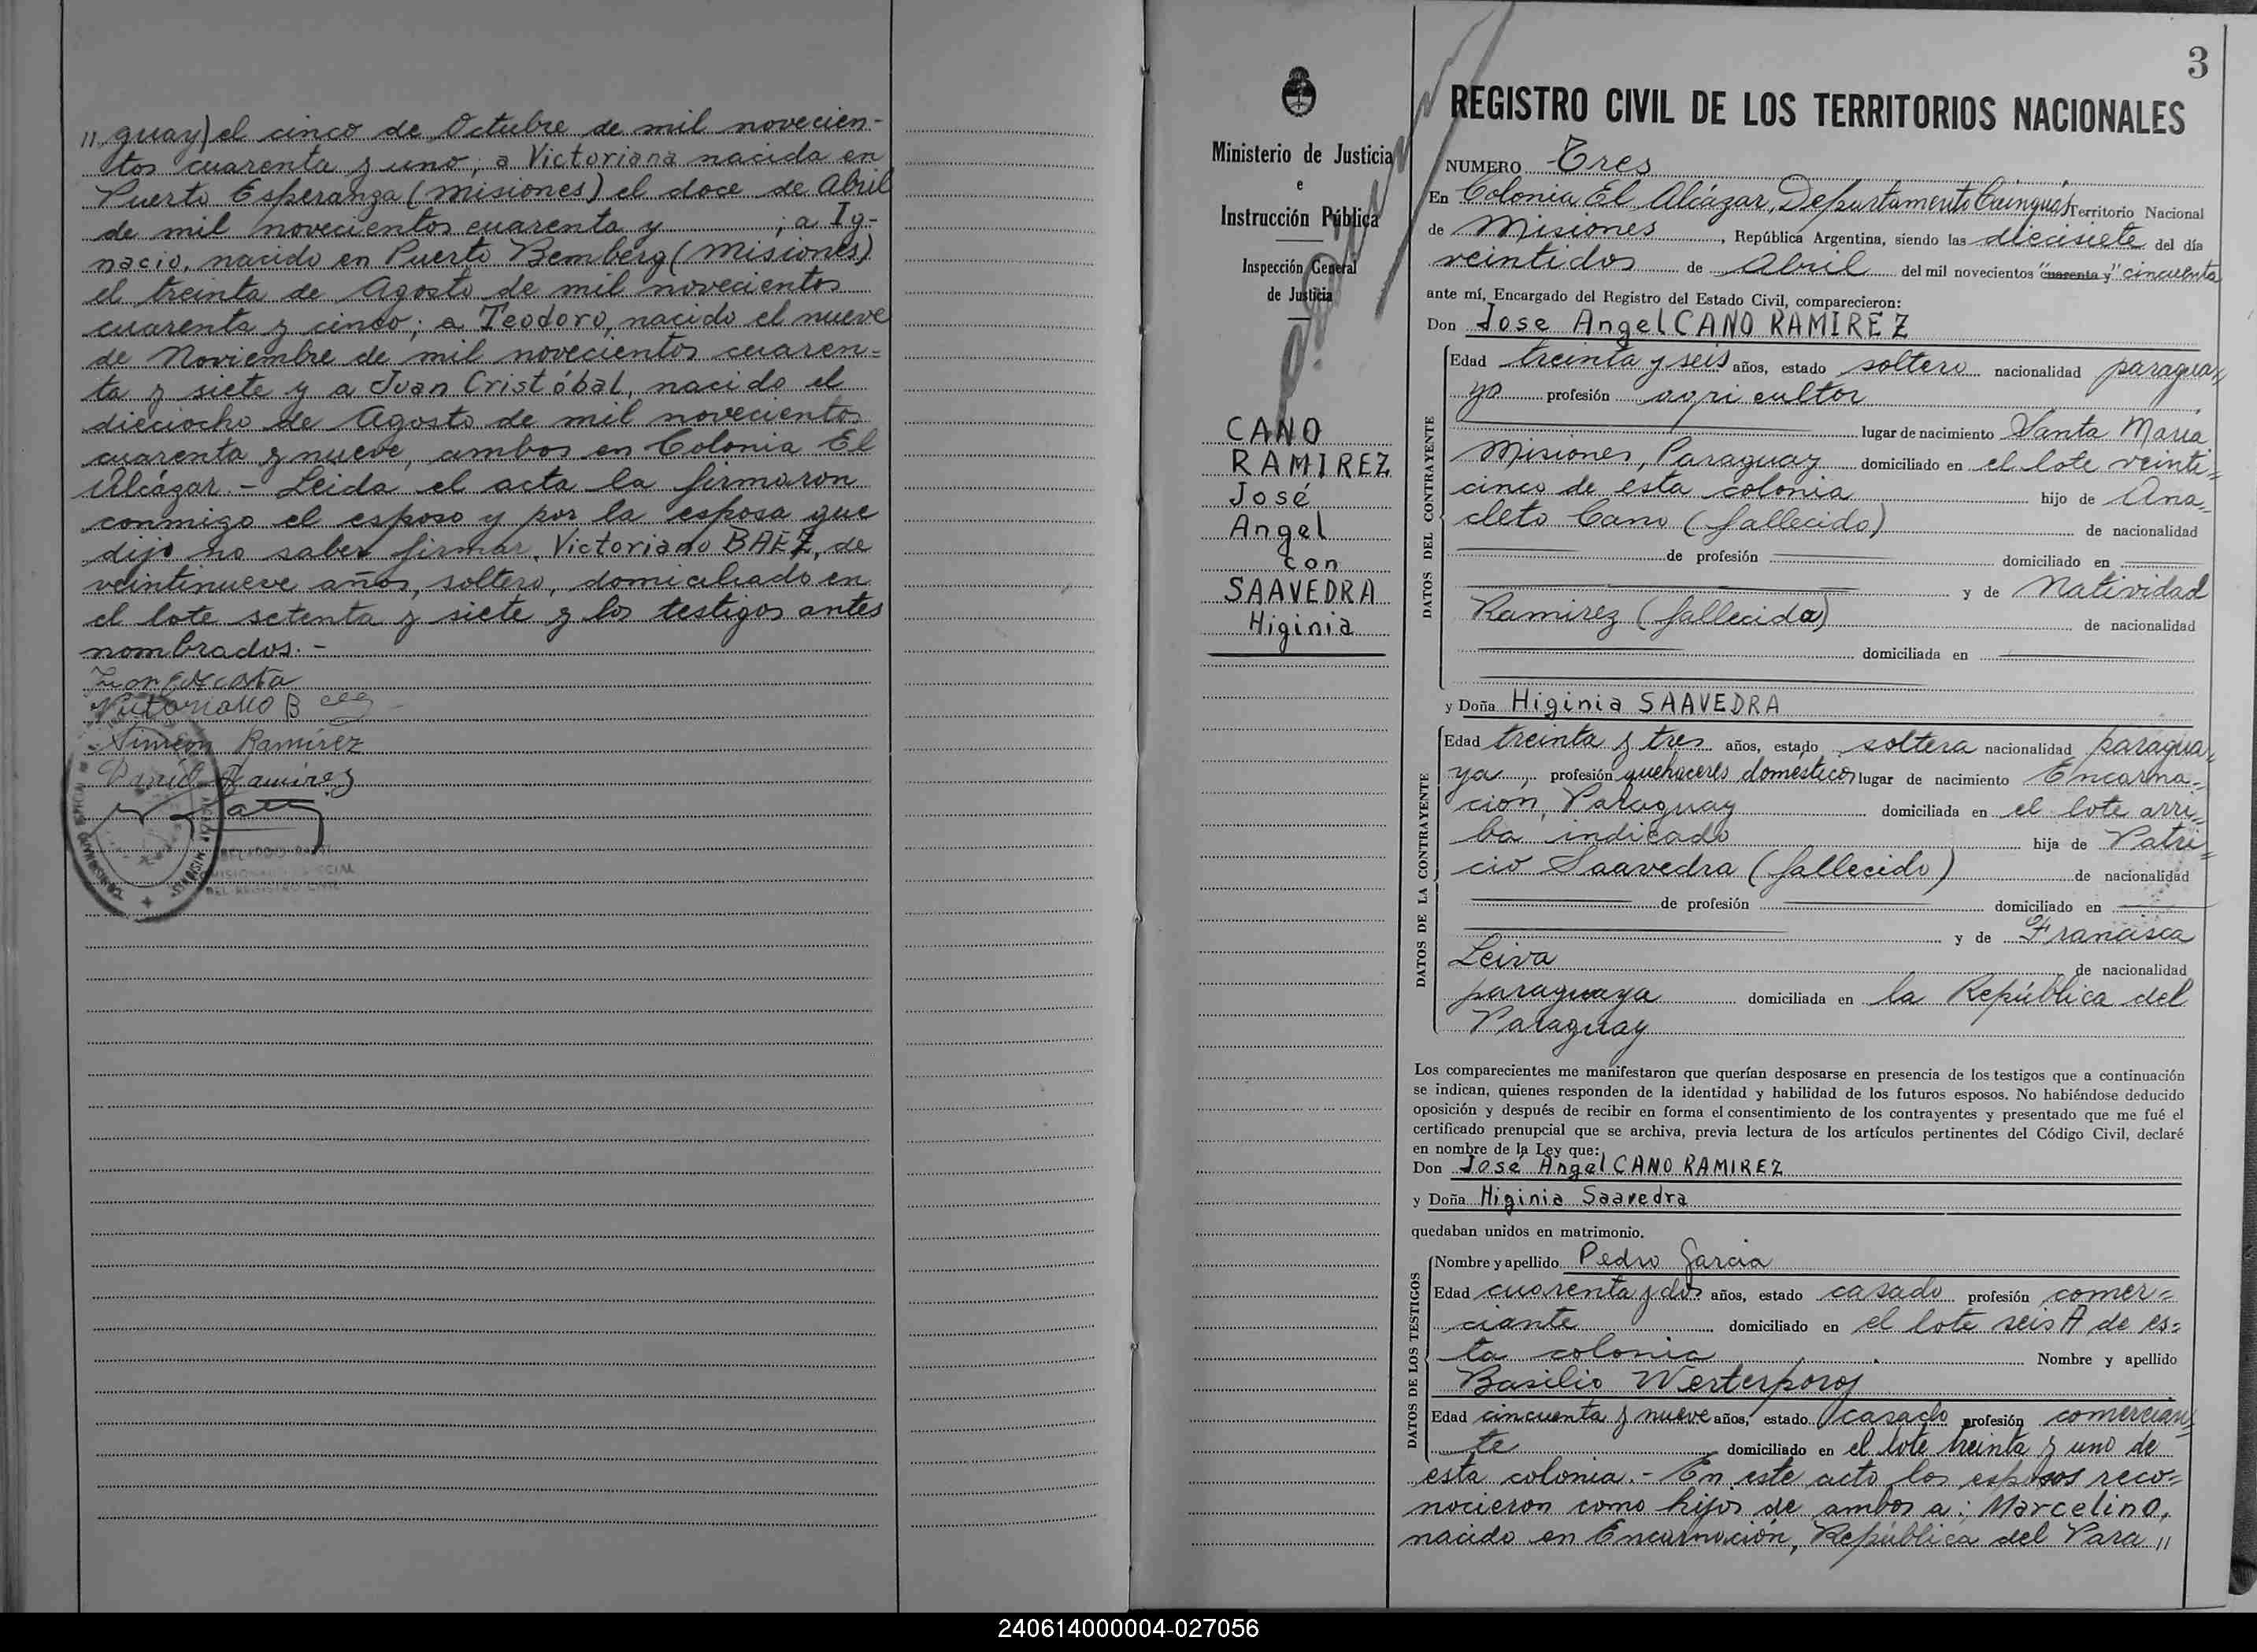 ,, guay) el cinco de Octubre de mil novecien-
tos cuarenta y uno; a Victoriana nacida en
Puerto Esperanza (Misiones) el doce de Abril
de mil novecientos cuarenta y ; a Ig-
nacio, nacido en Puerto Bemberg (Misiones)
el treinta de Agosto de mil novecientos
cuarenta y cinco; a Teodoro, nacido el nueve
de Noviembre de mil novecientos cuaren=
ta y siete y a Juan Cristóbal, nacido el
dieciocho de Agosto de mil novecientos
cuarenta y nueve, ambos en Colonia El
Alcázar.- Leida el acta la firmaron
conmigo el esposo y por la esposa que
dijo no saber firmar, Victoriano BAEZ, de
veintinueve años, soltero, domiciliado en
el lote setenta y siete y los testigos antes
nombrados.-
Victoriano B
Simeon Ramírez
Ramírez
DEL REGISTRO CIVIL
3
Ministerio de Justicia
e
Instrucción Pública
Inspección General
de Justicia
CANO
RAMIREZ
José
Angel
con
SAAVEDRA
Higinia
REGISTRO CIVIL DE LOS TERRITORIOS NACIONALES
NUMERO Tres
En Colonia El Alcázar, Departamento Cainguás Territorio Nacional
de Misiones, República Argentina, siendo las diecisiete del día
veintidos de Abril del mil novecientos "cuarenta y" cincuenta
ante mí, Encargado del Registro del Estado Civil, comparecieron:
Don Jose Angel CANO RAMIREZ
DATOS DEL CONTRAYENTE
Edad treinta y seis años, estado soltero nacionalidad paragua,,
yo profesión agricultor
lugar de nacimiento Santa Maria
Misiones, Paraguay domiciliado en el lote veinti=
cinco de esta colonia hijo de Ana,,
cleto Cano (fallecido) de nacionalidad
de profesión domiciliado en
y de Natividad
Ramirez (fallecida) de nacionalidad
domiciliada en
y Doña Higinia SAAVEDRA
DATOS DE LA CONTRAYENTE
Edad treinta y tres años, estado soltera nacionalidad paragua,,
ya, profesión quehaceres domésticos lugar de nacimiento Encarna=
ción, Paraguay domiciliada en el lote arri=
ba indicado hija de Patri=
cio Saavedra (fallecido) de nacionalidad
de profesión domiciliado en
y de Francisca
Leiva de nacionalidad
paraguaya domiciliada en la República del
Paraguay
Los comparecientes me manifestaron que querían desposarse en presencia de los testigos que a continuación
se indican, quienes responden de la identidad y habilidad de los futuros esposos. No habiéndose deducido
oposición y después de recibir en forma el consentimiento de los contrayentes y presentado que me fué el
certificado prenupcial que se archiva, previa lectura de los artículos pertinentes del Código Civil, declaré
en nombre de la Ley que:
Don José Angel CANO RAMIREZ
y Doña Higinia Saavedra
quedaban unidos en matrimonio.
DATOS DE LOS TESTIGOS
Nombre y apellido Pedro Garcia
Edad cuarenta y dos años, estado casado profesión comer=
ciante domiciliado en el lote seis A de es=
ta colonia Nombre y apellido
Basilio
Edad cincuenta y nueve años, estado casado profesión comercian=
te domiciliado en el lote treinta y uno de
esta colonia.- En este acto los esposos reco=
nocieron como hijos de ambos a: Marcelino,
nacido en Encarnación, República del Para ,,
240614000004-027056